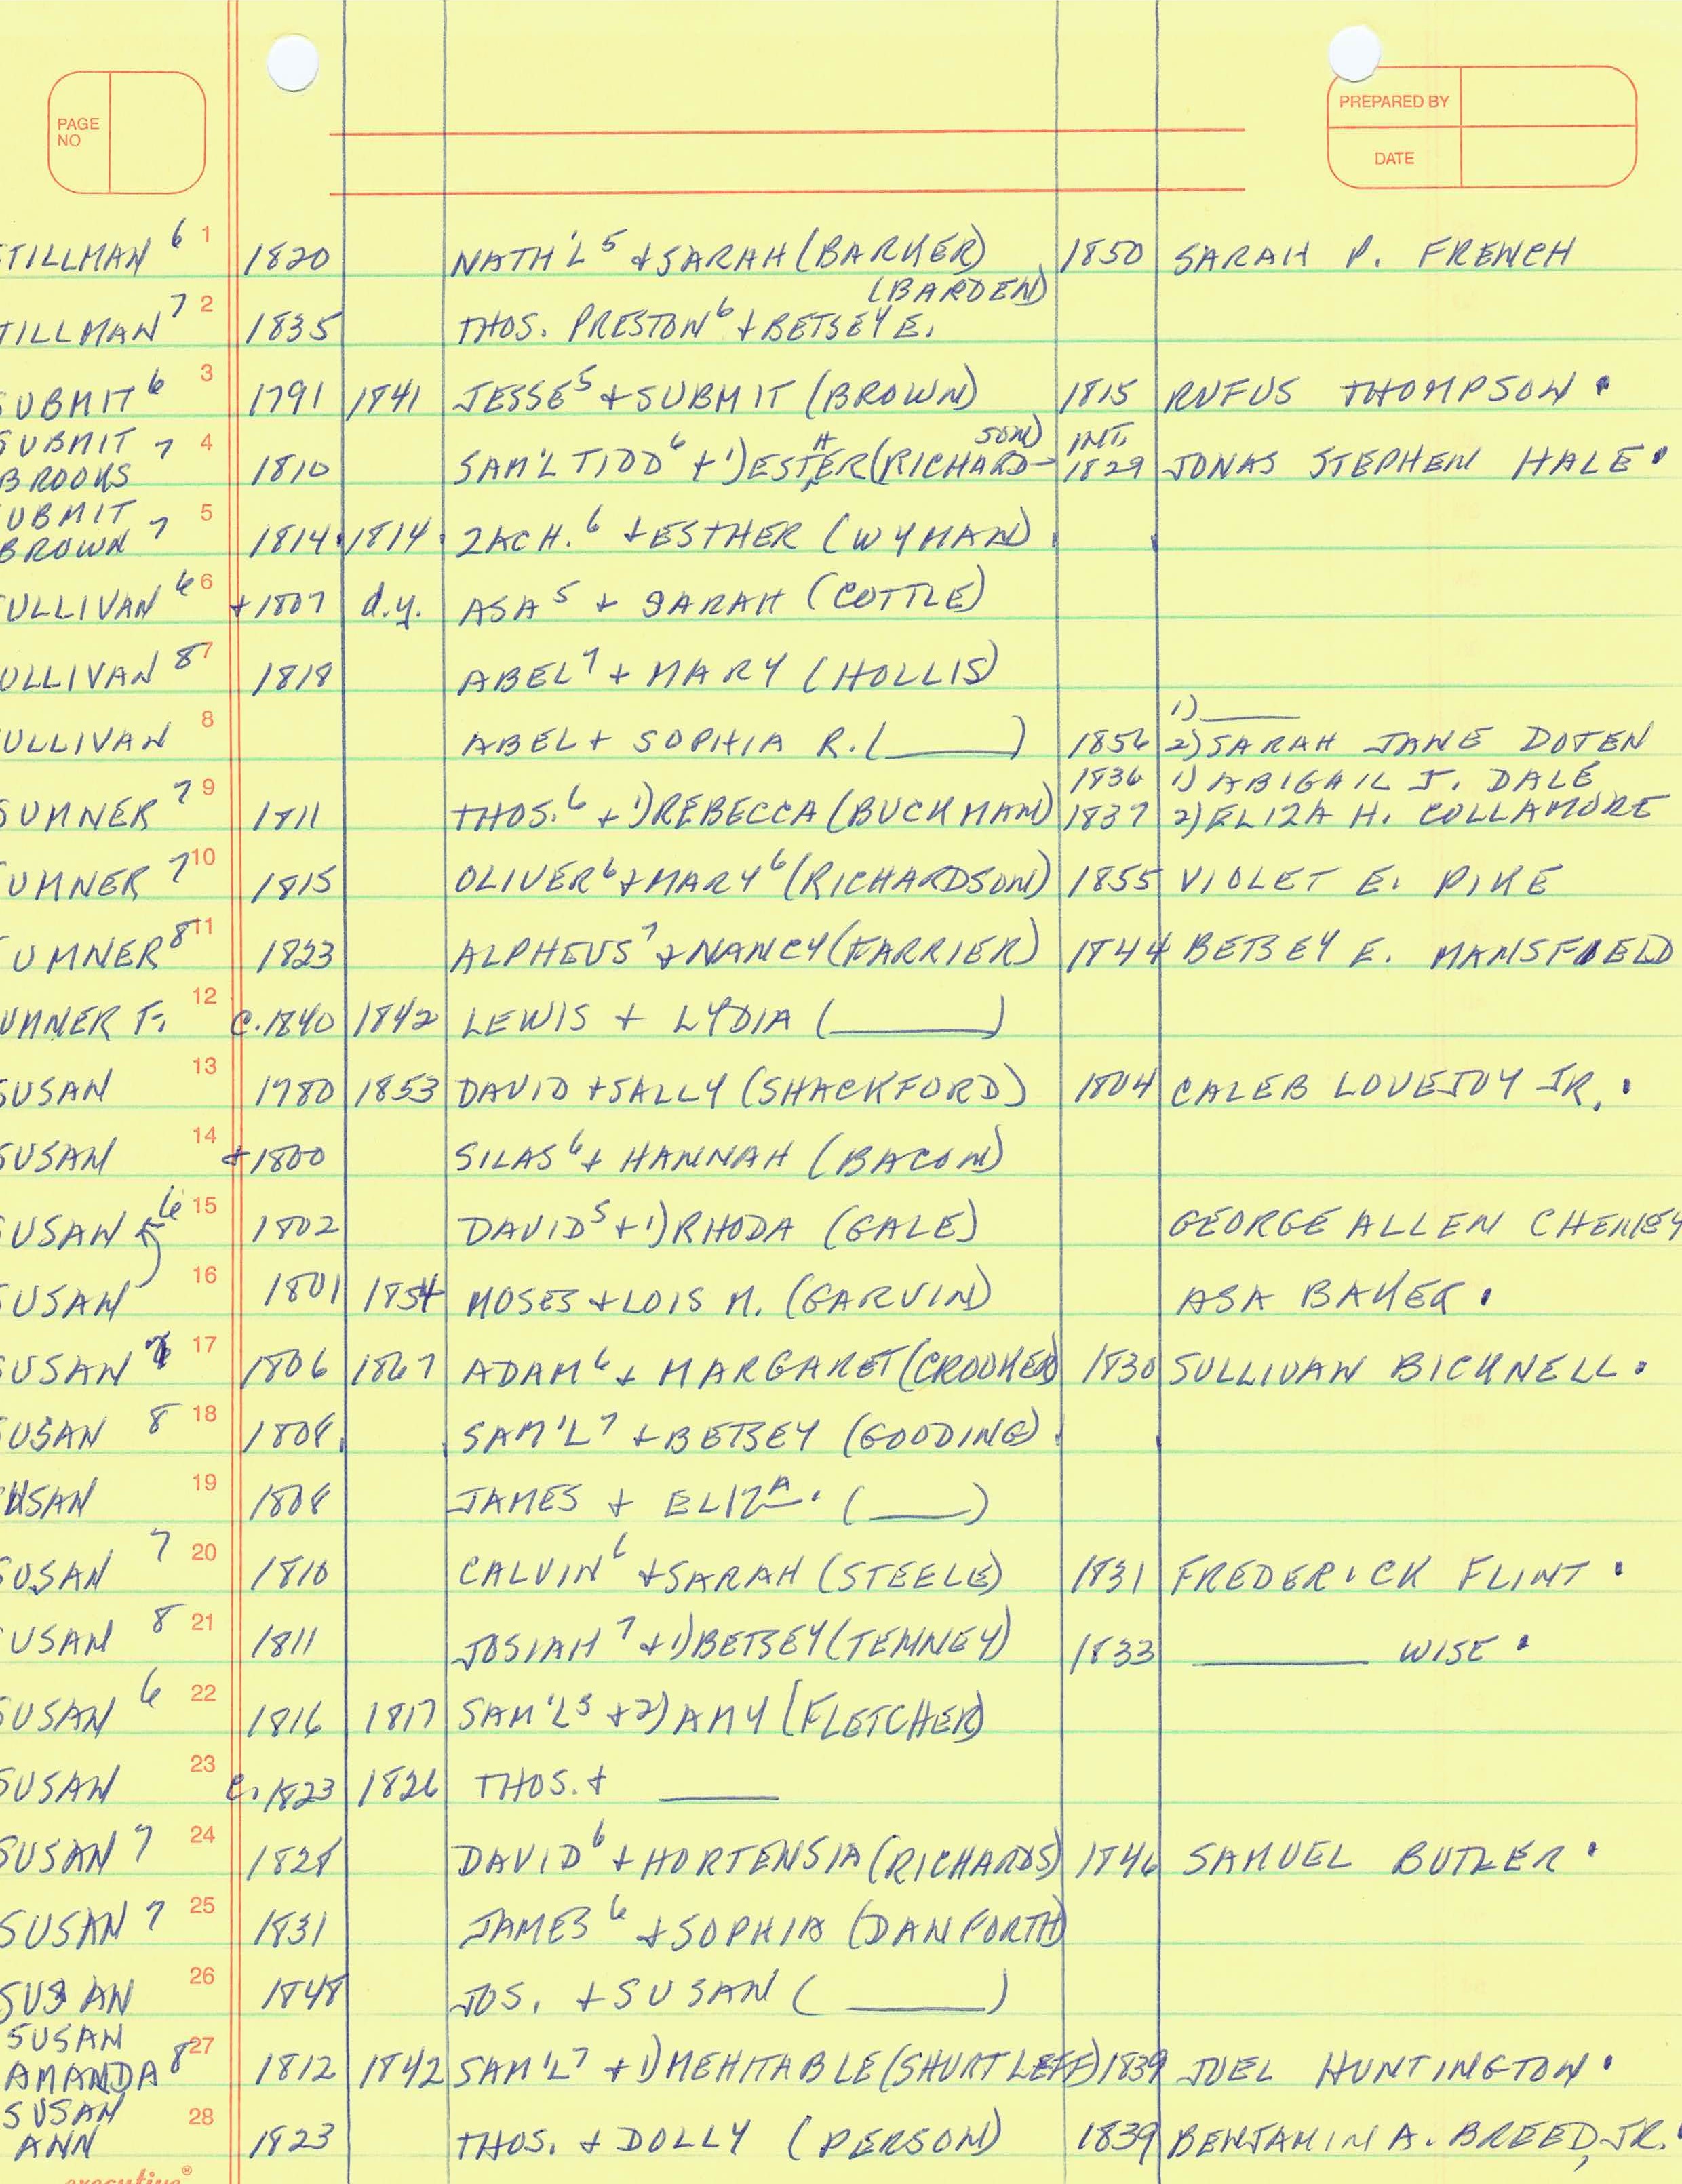 PAGE NO
PREPARED BY
DATE
TILLMAN 6 1 1820 NATH'L 5 + SARAH (BARKER) 1850 SARAH P. FRENCH
(BARDEN)
TILLMAN 7 2 1835 THOS. PRESTON 6 + BETSEY E.
UBMIT 6 3 1791 1841 JESSE 5 + SUBMIT (BROWN) 1815 RUFUS THOMPSON •
SUBMIT 7 4 SON) INT.
BROOKS 1810 SAM'L TIDD 6 + 1) ESTHER (RICHARD- 1829 JONAS STEPHEN HALE •
UBMIT 7 5
BROWN 1814 1814 ZACH. 6 + ESTHER (WYMAN)
ULLIVAN 6 6 +1807 d.y. ASA 5 + SARAH (COTTLE)
ULLIVAN 8 7 1818 ABEL 7 + MARY (HOLLIS)
1) ____
ULLIVAN 8 ABEL + SOPHIA R. (____) 1856 2) SARAH JANE DOTEN
1836 1) ABIGAIL J. DALE
SUMNER 7 9 1811 THOS. 6 + 1) REBECCA (BUCKMAN) 1837 2) ELIZA H. COLLAMORE
UMNER 7 10 1815 OLIVER 6 + MARY 6 (RICHARDSON) 1855 VIOLET E. PIKE
UMNER 8 11 1823 ALPHEUS 7 + NANCY (FARRIER) 1844 BETSEY E. MANSFIELD
UMNER F. 12 C. 1840 1842 LEWIS + LYDIA (____)
SUSAN 13 1780 1853 DAVID + SALLY (SHACKFORD) 1804 CALEB LOVEJOY JR. •
SUSAN 14 +1800 SILAS 6 + HANNAH (BACON)
USAN 6 15 1802 DAVID 5 + 1) RHODA (GALE) GEORGE ALLEN CHENEY
USAN 16 1801 1854 MOSES + LOIS M. (GARVIN) ASA BAKER •
USAN 7 17 1806 1867 ADAM 6 + MARGARET (CROOKER) 1830 SULLIVAN BICKNELL •
USAN 8 18 1808 SAM'L 7 + BETSEY (GOODING)
USAN 19 1808 JAMES + ELIZA. (____)
SUSAN 7 20 1810 CALVIN 6 + SARAH (STEELE) 1831 FREDERICK FLINT •
USAN 8 21 1811 JOSIAH 7 + 1) BETSEY (TENNEY) 1833 ____ WISE •
SUSAN 6 22 1816 1817 SAM'L 5 + 2) AMY (FLETCHER)
SUSAN 23 C. 1823 1826 THOS. + ____
SUSAN 7 24 1828 DAVID 6 + HORTENSIA (RICHARDS) 1846 SAMUEL BUTLER •
SUSAN 7 25 1831 JAMES 6 + SOPHIA (DANFORTH)
SUSAN 26 1848 JOS. + SUSAN (____)
SUSAN
AMANDA 8 27 1812 1842 SAM'L 7 + 1) MEHITABLE (SHURTLEFF) 1839 JOEL HUNTINGTON •
SUSAN
ANN 28 1823 THOS. + DOLLY (PERSON) 1839 BENJAMIN A. BREED, JR. •
executive®